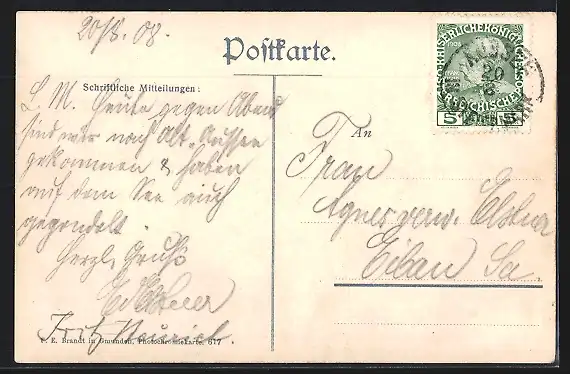 20/8. 08.
Postkarte.
Schriftliche Mitteilungen:
L. M. Heute gegen Abend
sind wir nach Alt-Aussee
gekommen & haben
auf dem See auch
gegondelt.
Herzl. Gruß
Fritz
P. E. Brandt in Gmunden, Photochromiekarte. 617
1908
5 5
20
8
An
Frau
Agnes verw. Elstner
Eibau Sa.